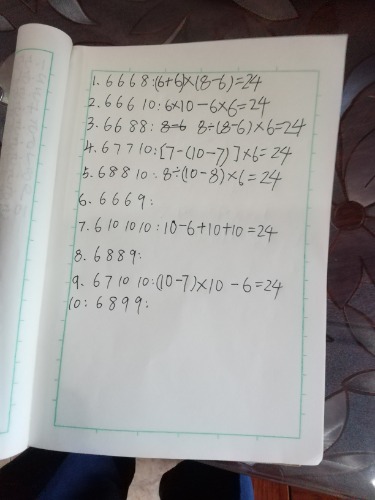 1. 6 6 6 8:(6+6)×(8-6)=24
2. 6 6 6 10:6×10-6×6=24
3. 6 6 8 8: 8-6 8÷(8-6)×6=24
4. 6 7 7 10:[7-(10-7)]×6=24
5. 6 8 8 10: 8÷(10-8)×6=24
6. 6 6 6 9:
7. 6 10 10 10:10-6+10+10=24
8. 6 8 8 9:
9. 6 7 10 10:(10-7)×10-6=24
10: 6 8 9 9: